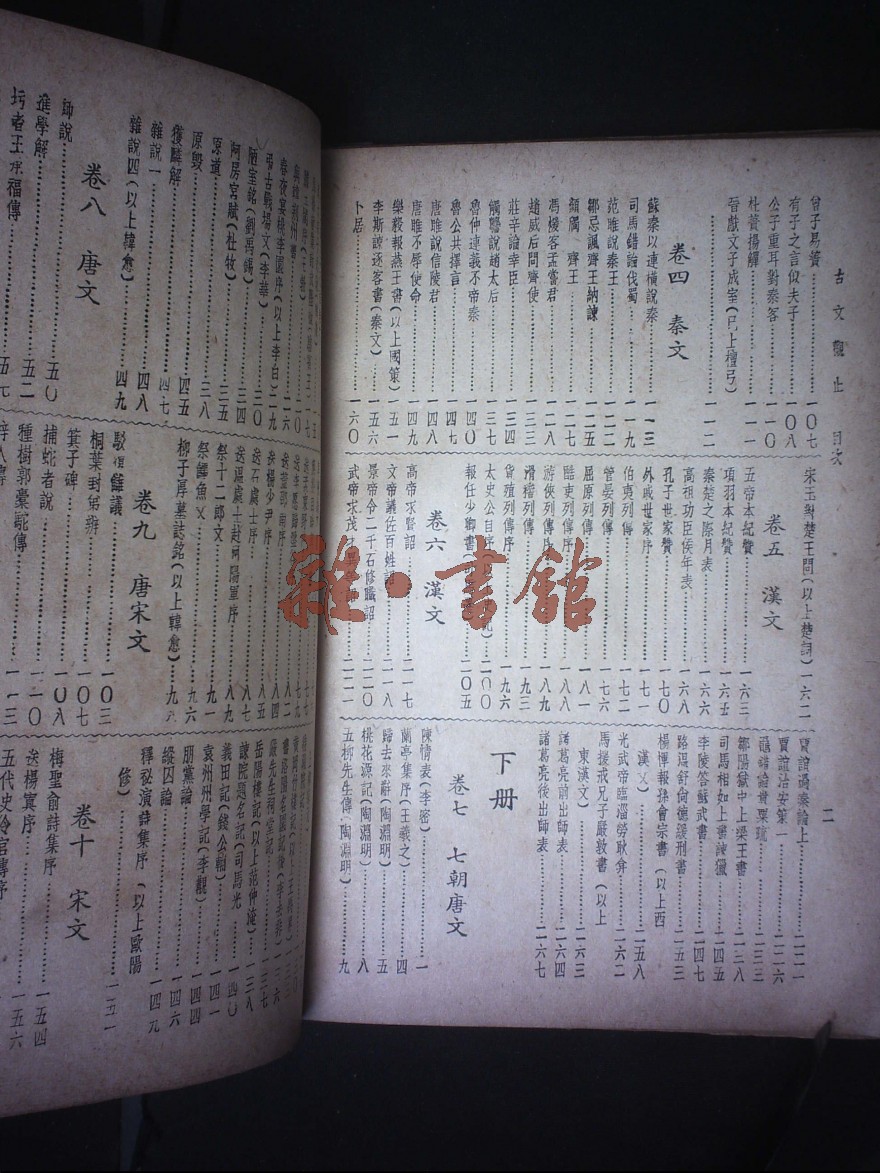 古文觀止 目次
二
曾子易簀……一〇七
有子之言似夫子……一〇八
公子重耳對秦客……一一〇
杜蕢揚觶……一一一
晉獻文子成室(已上檀弓)
……一一二
卷四 秦文
蘇秦以連橫說秦……一一三
司馬錯論伐蜀……一一九
范雎說秦王……一二二
鄒忌諷齊王納諫……一二五
顏斶 齊王……一二七
馮煖客孟嘗君……一二八
趙威后問齊使……一三三
莊辛論幸臣……一三四
觸讋說趙太后……一三七
魯仲連義不帝秦……一四〇
魯公共擇言……一四七
唐雎說信陵君……一四八
唐雎不辱使命……一四九
樂毅報燕王書(以上國策)……一五一
李斯諫逐客書(秦文)……一五六
卜居……一六〇
宋玉對楚王問(以上楚詞)一六二
卷五 漢文
五帝本紀贊……一六三
項羽本紀贊
秦楚之際月表……一六六
高祖功臣侯年表……一六八
孔子世家贊……一七〇
外戚世家序
伯夷列傳……一七二
管晏列傳……一七六
屈原列傳……一八一
酷吏列傳序……一八八
游俠列傳序……一八九
滑稽列傳……一九三
貨殖列傳序……一九六
太史公自序……二〇〇
報任少卿書……二〇五
卷六 漢文
高帝求賢詔……二一七
文帝議佐百姓詔……二一八
景帝令二千石修職詔……二二〇
武帝求茂……二二一
賈誼過秦論上……二二一
賈誼治安策一……二二六
鼂錯論貴粟疏……二三三
鄒陽獄中上梁王書……二三八
司馬相如上書諫獵……二四五
李陵答蘇武書……二四七
路溫舒尚德緩刑書
楊惲報孫會宗書(以上西
漢文)……二五八
光武帝臨淄勞耿弇……二六二
馬援戒兄子嚴敦書(以上
東漢文)……二六三
諸葛亮前出師表……二六四
諸葛亮後出師表……二六七
下册
卷七 七朝唐文
陳情表(李密)……一
蘭亭集序(王羲之)……四
歸去來辭(陶淵明)……五
桃花源記(陶淵明)……八
五柳先生傳(陶淵明)……九
春夜宴桃李園序(以上李白)二九
弔古戰場文(李華)……三〇
陋室銘(劉禹錫)……三四
阿房宮賦(杜牧)……三五
原道……三八
原毀……四五
獲麟解……四七
雜說一……四八
雜說四(以上韓愈)……四九
卷八 唐文
師說……五〇
進學解……五二
圬者王承福傳
送楊少尹序
送石處士序
送溫處士赴河陽軍序……八九
祭十二郎文……九一
祭鱷魚文……九六
柳子厚墓誌銘(以上韓愈)……九九
卷九 唐宋文
駁復讎議……一〇三
桐葉封弟辨……一〇七
箕子碑……一〇八
捕蛇者說……一一〇
種樹郭橐駝傳……一一三
梓人傳
嚴先生祠堂記
岳陽樓記(以上范仲淹)……一三七
諫院題名記(司馬光)……一三八
義田記(錢公輔)……一四〇
袁州州學記(李覯)……一四一
朋黨論……一四四
縱囚論……一四六
釋秘演詩集序(以上歐陽
修)
卷十 宋文
梅聖俞詩集序……一五四
送楊寘序……一五六
五代史伶官傳序
雜·書館